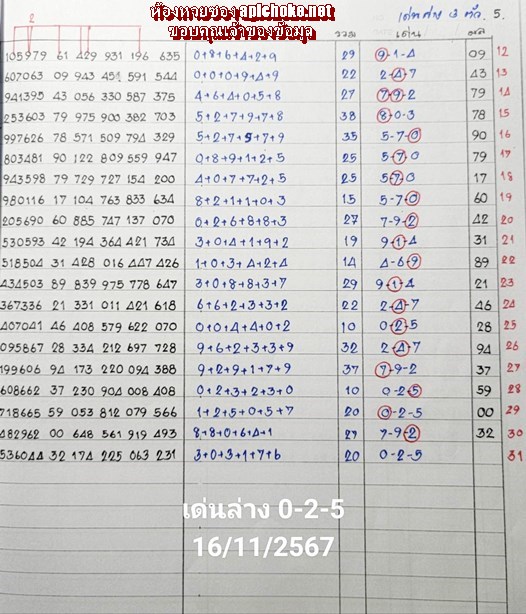 ห้องหวยซอง anichoke.net
ขอบคุณเจ้าของข้อมูล
2
เด่นล่าง 3 ตัว. 5.
รวม เด่น ผล
105979 61 429 931 196 635 0+8+6+4+2+9 29 9-1-4 09 12
607063 09 943 451 591 544 0+1+0+9+4+9 22 2-4-7 43 13
941395 43 056 330 587 375 4+6+4+0+5+8 27 7-9-2 79 14
253603 79 975 900 382 703 5+2+7+9+7+8 38 8-0-3 78 15
997626 78 571 509 794 329 5+2+7+5+7+9 35 5-7-0 90 16
803481 90 122 809 559 947 0+8+9+1+2+5 25 5-7-0 79 17
943598 79 729 727 154 200 4+0+7+7+2+5 25 5-7-0 17 18
980116 17 104 763 833 634 8+2+1+1+0+3 15 5-7-0 60 19
205690 60 885 747 137 070 0+2+6+8+8+3 27 7-9-2 42 20
530593 42 194 364 421 734 3+0+4+1+9+2 19 9-1-4 31 21
518504 31 428 016 447 426 1+0+3+4+2+4 14 4-6-9 89 22
434503 89 839 975 778 647 3+0+8+8+3+7 29 9-1-4 21 23
367336 21 331 011 421 618 6+6+2+3+3+2 22 2-4-7 46 24
407041 46 408 579 622 070 0+0+4+4+0+2 10 0-2-5 28 25
095867 28 334 212 697 728 9+6+2+3+3+9 32 2-4-7 94 26
199606 94 173 220 094 388 9+2+9+1+7+9 37 7-9-2 37 27
608662 37 230 904 008 408 0+2+3+2+3+0 10 0-2-5 59 28
718665 59 053 812 079 566 1+2+5+0+5+7 20 0-2-5 00 29
482962 00 648 561 919 493 8+8+0+6+4+1 27 7-9-2 32 30
536044 32 174 225 063 231 3+0+3+1+7+6 20 0-2-5 31
เด่นล่าง 0-2-5
16/11/2567